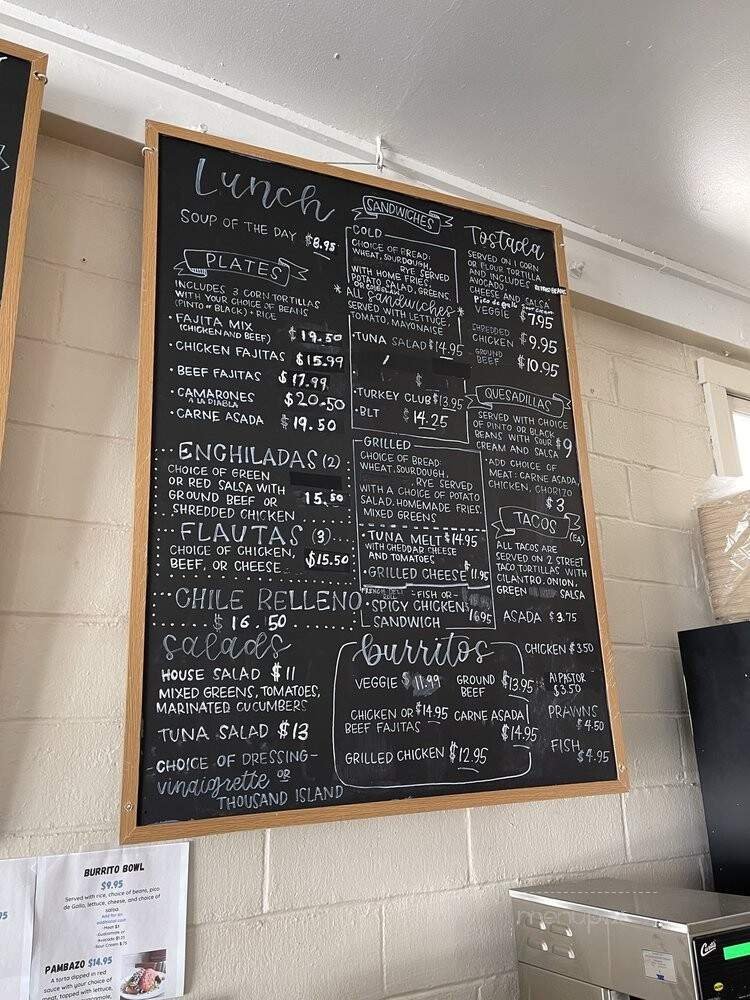 Lunch
SOUP OF THE DAY $8.95
PLATES
INCLUDES 3 CORN TORTILLAS
WITH YOUR CHOICE OF BEANS
(PINTO OR BLACK) + RICE
• FAJITA MIX $19.50
(CHICKEN AND BEEF)
• CHICKEN FAJITAS $15.99
• BEEF FAJITAS $17.99
• CAMARONES $20.50
A LA DIABLA
• CARNE ASADA $19.50
ENCHILADAS (2)
CHOICE OF GREEN
OR RED SALSA WITH
GROUND BEEF OR 15.50
SHREDDED CHICKEN
FLAUTAS (3)
CHOICE OF CHICKEN,
BEEF, OR CHEESE $15.50
CHILE RELLENO
$16.50
salads
HOUSE SALAD $11
MIXED GREENS, TOMATOES,
MARINATED CUCUMBERS
TUNA SALAD $13
CHOICE OF DRESSING-
vinaigrette OR
THOUSAND ISLAND
SANDWICHES
COLD
CHOICE OF BREAD:
WHEAT, SOURDOUGH,
RYE SERVED
WITH HOME FRIES,
POTATO SALAD, GREENS,
* All sandwiches *
SERVED WITH LETTUCE,
TOMATO, MAYONAISE
• TUNA SALAD $14.95
• TURKEY CLUB $13.95
• BLT $14.25
GRILLED
CHOICE OF BREAD:
WHEAT, SOURDOUGH,
RYE SERVED
WITH A CHOICE OF POTATO
SALAD, HOMEMADE FRIES,
MIXED GREENS
• TUNA MELT $14.95
WITH CHEDDAR CHEESE
AND TOMATOES
• GRILLED CHEESE $11.95
FRENCH DELI ROLL
- FISH OR -
• SPICY CHICKEN
SANDWICH 16.95
burritos
VEGGIE $11.99
GROUND BEEF $13.95
CHICKEN OR $14.95
BEEF FAJITAS
CARNE ASADA
$14.95
GRILLED CHICKEN $12.95
Tostada
SERVED ON 1 CORN
OR FLOUR TORTILLA
AND INCLUDES
AVOCADO,
CHEESE AND SALSA
Pico de gallo
VEGGIE $7.95
SHREDDED
CHICKEN $9.95
GROUND
BEEF $10.95
QUESADILLAS
SERVED WITH CHOICE
OF PINTO OR BLACK
BEANS WITH SOUR $9
CREAM AND SALSA
• ADD CHOICE OF
MEAT: CARNE ASADA,
CHICKEN, CHORIZO
$3
TACOS (EA)
ALL TACOS ARE
SERVED ON 2 STREET
TACO TORTILLAS WITH
CILANTRO, ONION,
GREEN SALSA
ASADA $3.75
CHICKEN $3.50
Al PASTOR
$3.50
PRAWNS
$4.50
FISH
$4.95
BURRITO BOWL
$9.95
Served with rice, choice of beans, pico
de Gallo, lettuce, cheese, and choice of
salsa
PAMBAZO $14.95
A torta dipped in red
sauce with your choice of
meat, topped with lettuce,
Curtis
menupix